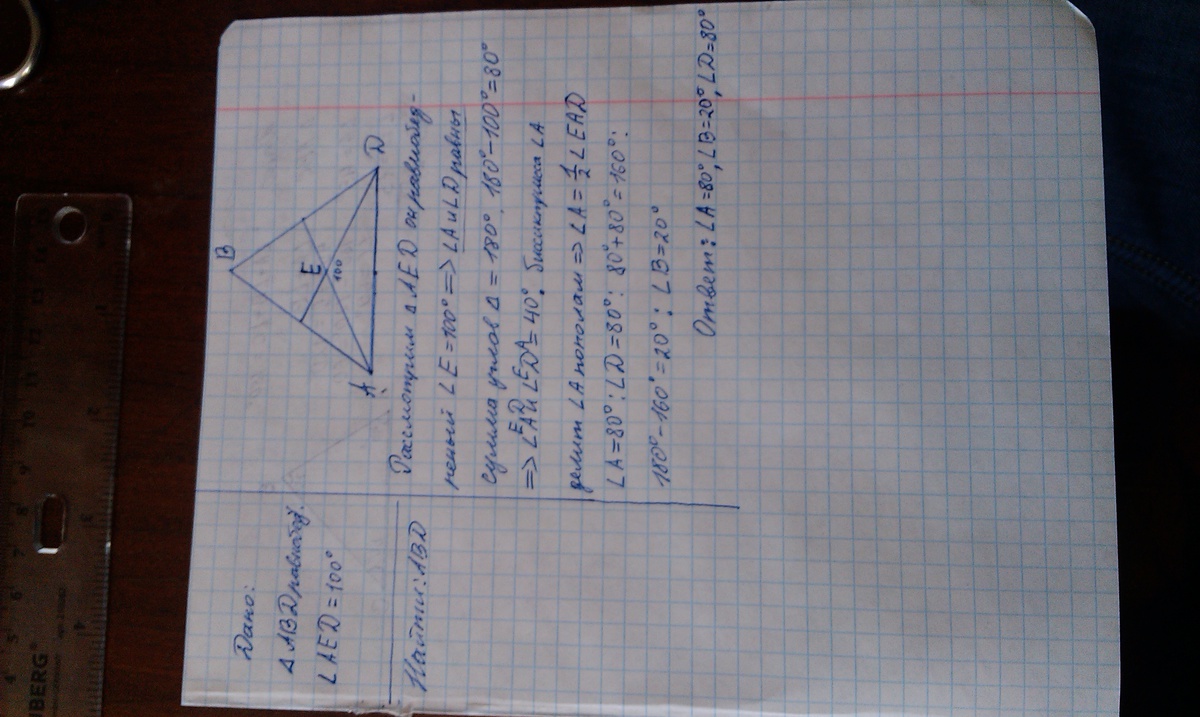 Дано:
△ ABD равнобед.
∠AED = 100°
Найти: ABD
B
E
100
A
D
Рассмотрим △ AED он равнобед-
реный ∠E = 100° => ∠A и ∠D равны
сумма углов △ = 180°. 180° - 100° = 80°
=> ∠EAD и ∠EDA = 40°. биссиктриса ∠A
делит ∠A пополам => ∠A = 1/2 ∠EAD
∠A = 80°; ∠D = 80°; 80° + 80° = 160°;
180° - 160° = 20°; ∠B = 20°
Ответ: ∠A = 80°, ∠B = 20°, ∠D = 80°